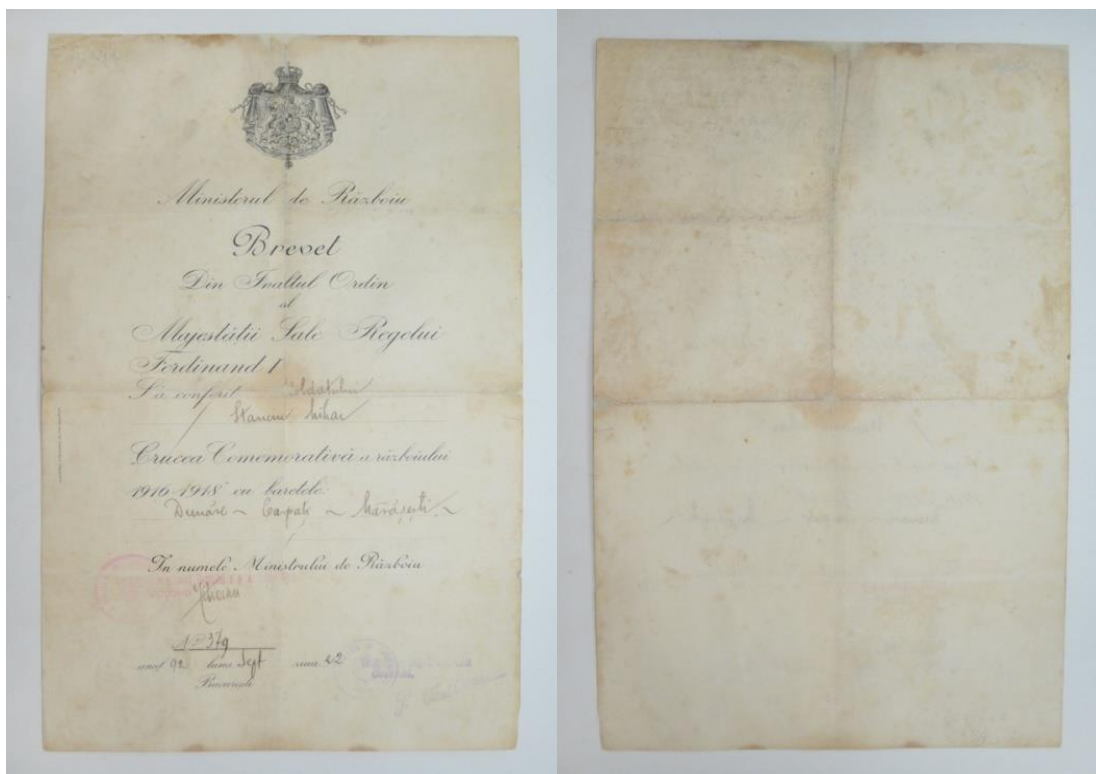 Ministerul de Războiu
Brevet
Din Inaltul Ordin
al
Majestății Sale Regelui
Ferdinand I
S'a conferit Soldatului
Stanciu Mihai
Crucea Comemorativă a războiului
1916-1918" cu baretele:
Dunăre ~ Carpați ~ Mărășești. ~
In numele Ministrului de Războiu
No 379
anul 92 luna Sept ziua 22
București